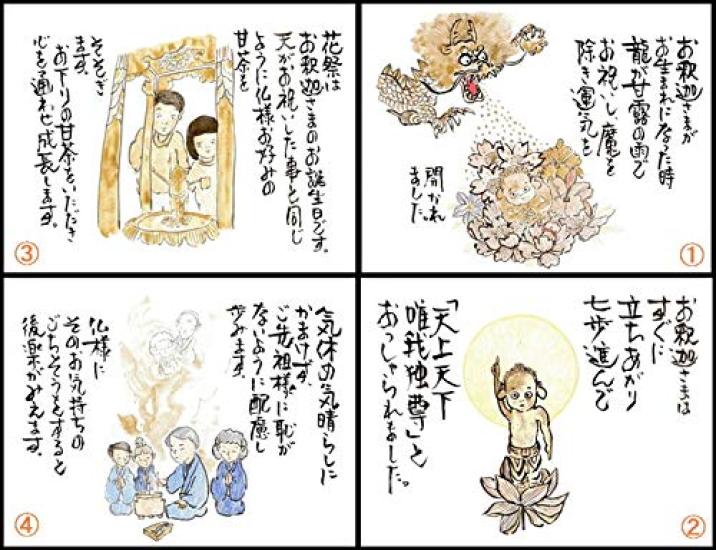 お釈迦さまが
お生まれになった時
龍が甘露の雨で
お祝いし、魔を
除き運気を
開かれ
ました。
①
お釈迦さまは
すぐに
立ちあがり
七歩進んで
「天上天下
唯我独尊」と
おっしゃられました。
②
花祭は
お釈迦さまのお誕生日です。
天がお祝いした事と同じ
ように仏様お好みの
甘茶を
そそぎ
ます。
お下りの甘茶をいただき
心を通わせ成長します。
③
気休の気晴らしに
かまけず、
ご先祖様に恥が
ないように配慮し
歩みます。
仏様に
そのお気持ちの
ごちそうをすると
後楽がみえます。
④